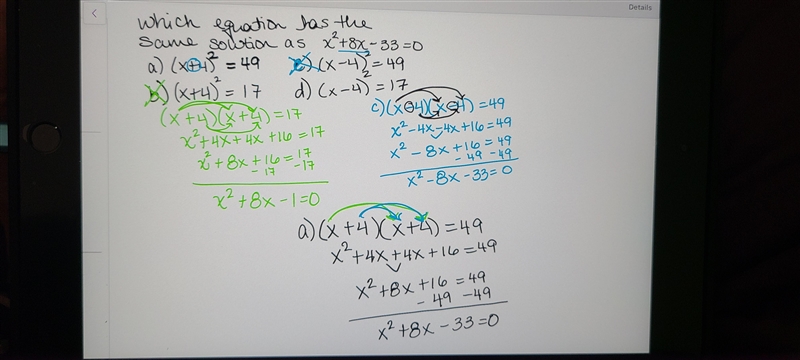 Details
which equation has the
same solution as x²+8x-33=0
a) (x+4)² = 49 c) (x-4)² = 49
b) (x+4)² = 17 d) (x-4)² = 17
(x+4)(x+4)=17
x²+4x+4x+16=17
x²+8x+16=17
-17 -17
x²+8x-1=0
c) (x-4)(x-4)=49
x²-4x-4x+16=49
x²-8x+16=49
-49 -49
x²-8x-33=0
a) (x+4)(x+4)=49
x²+4x+4x+16=49
x²+8x+16=49
-49 -49
x²+8x-33=0